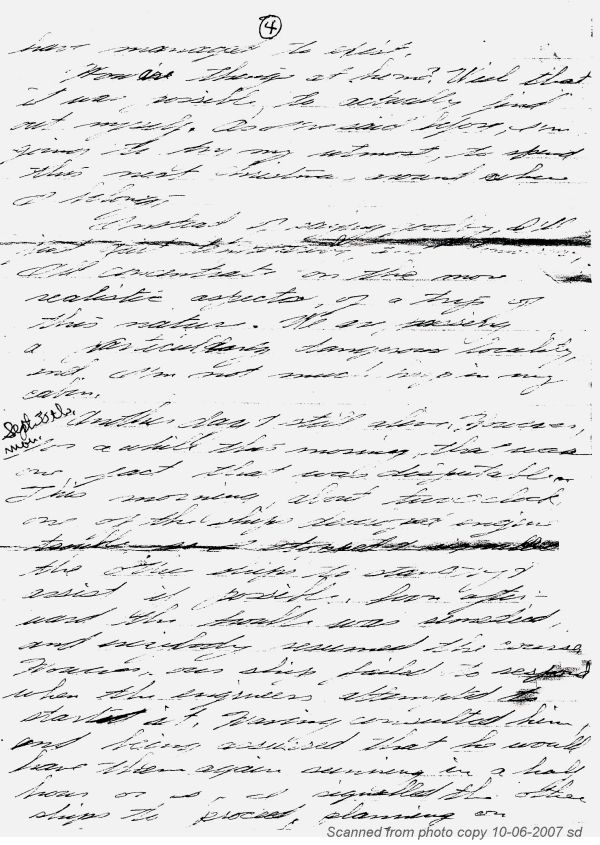 4
have managed to exist.
How are things at home? Wish that
it was possible, to actually find
out myself. As I've said before, I'm
going to try my utmost, to spend
this next Christmas, around where
I belong.
Instead of
I'll concentrate on the more
realistic aspects, of a trip of
this nature. We are nearing
a particularly dangerous locality,
and I'm not much in my
cabin.
Sept. 30th.
Mon.
Another day & still alive. However,
for a while this morning, that was
one fact that was disputable.
This morning, about two o'clock
one of the ships developed engine
trouble so I signalled
the other ships to standby &
assist if possible. Soon after-
ward the trouble was remedied,
and everybody resumed the course
However, our ship failed to respond
when the engineers attempted to
start it. Having consulted him,
and being assured that he would
have them again running in a half
hour or so, I signalled the other
ships to proceed, planning on
Scanned from photo copy 10-06-2007 sd